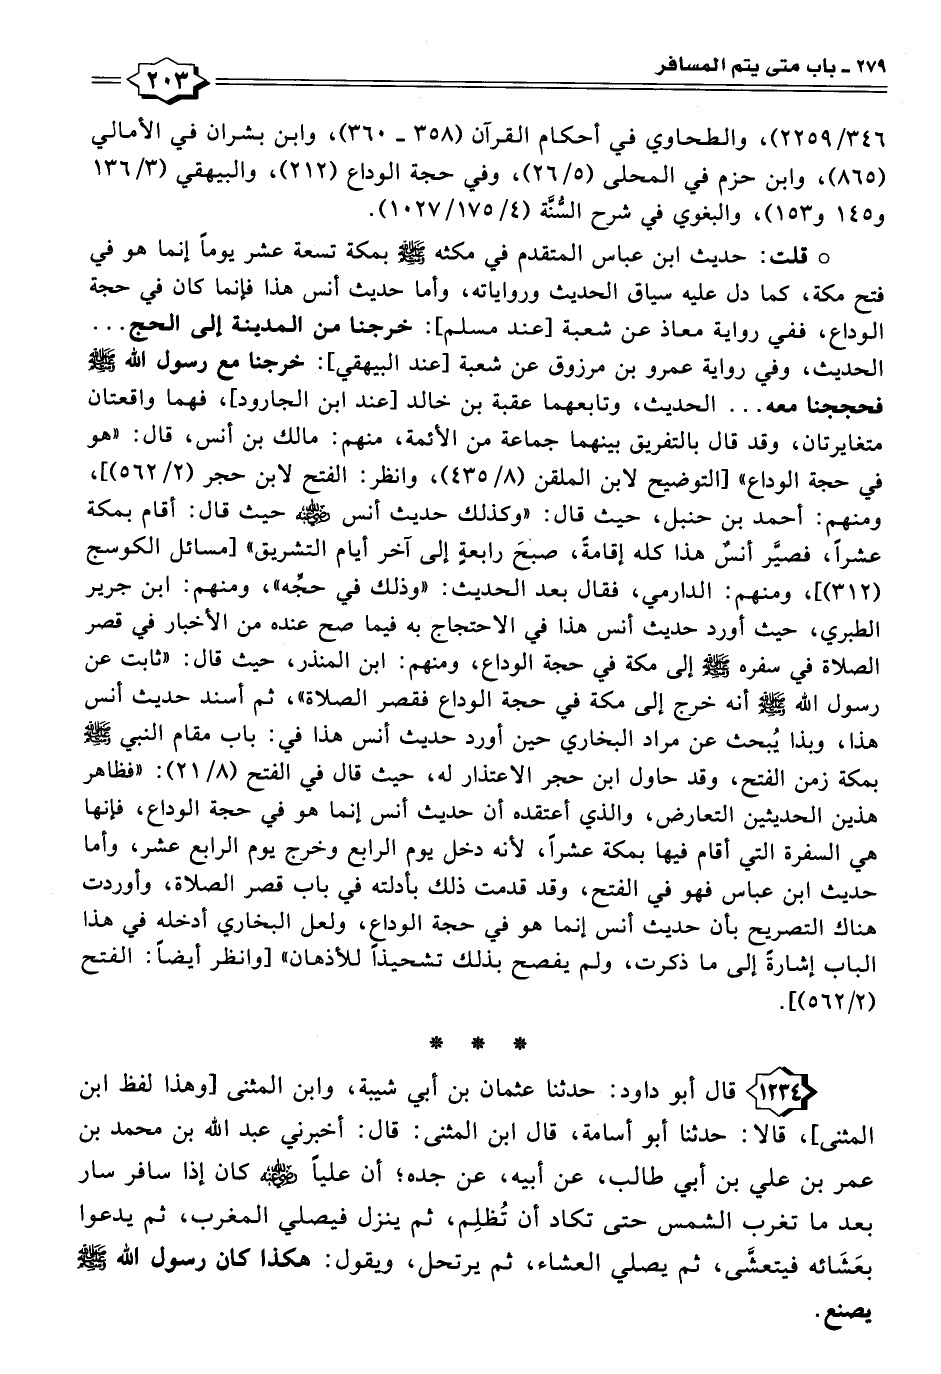 ٢٧٩ ـ باب متى يتم المسافر
٢٠٣
٢٢٥٩/٣٤٦)، والطحاوي في أحكام القرآن (٣٥٨ ـ ٣٦٠)، وابن بشران في الأمالي
(٨٦٥)، وابن حزم في المحلى (٢٦/٥)، وفي حجة الوداع (٢١٢)، والبيهقي (١٣٦/٣
و١٤٥ و١٥٣)، والبغوي في شرح السُّنَّة (١٠٢٧/١٧٥/٤).
○ قلت: حديث ابن عباس المتقدم في مكثه ﷺ بمكة تسعة عشر يوماً إنما هو في
فتح مكة، كما دل عليه سياق الحديث ورواياته، وأما حديث أنس هذا فإنما كان في حجة
الوداع، ففي رواية معاذ عن شعبة [عند مسلم]: خرجنا من المدينة إلى الحج...
الحديث، وفي رواية عمرو بن مرزوق عن شعبة [عند البيهقي]: خرجنا مع رسول الله ﷺ
فحججنا معه... الحديث، وتابعهما عقبة بن خالد [عند ابن الجارود]، فهما واقعتان
متغايرتان، وقد قال بالتفريق بينهما جماعة من الأئمة، منهم: مالك بن أنس، قال: «هو
في حجة الوداع» [التوضيح لابن الملقن (٤٣٥/٨)، وانظر: الفتح لابن حجر (٥٦٢/٢)]،
ومنهم: أحمد بن حنبل، حيث قال: «وكذلك حديث أنس رضي الله عنه حيث قال: أقام بمكة
عشراً، فصيَّر أنسٌ هذا كله إقامةً، صبحَ رابعةٍ إلى آخر أيام التشريق» [مسائل الكوسج
(٣١٢)]، ومنهم: الدارمي، فقال بعد الحديث: «وذلك في حجِّه»، ومنهم: ابن جرير
الطبري، حيث أورد حديث أنس هذا في الاحتجاج به فيما صح عنده من الأخبار في قصر
الصلاة في سفره ﷺ إلى مكة في حجة الوداع، ومنهم: ابن المنذر، حيث قال: «ثابت عن
رسول الله ﷺ أنه خرج إلى مكة في حجة الوداع فقصر الصلاة»، ثم أسند حديث أنس
هذا، وبذا يُبحث عن مراد البخاري حين أورد حديث أنس هذا في: باب مقام النبي ﷺ
بمكة زمن الفتح، وقد حاول ابن حجر الاعتذار له، حيث قال في الفتح (٢١/٨): «فظاهر
هذين الحديثين التعارض، والذي أعتقده أن حديث أنس إنما هو في حجة الوداع، فإنها
هي السفرة التي أقام فيها بمكة عشراً، لأنه دخل يوم الرابع وخرج يوم الرابع عشر، وأما
حديث ابن عباس فهو في الفتح، وقد قدمت ذلك بأدلته في باب قصر الصلاة، وأوردت
هناك التصريح بأن حديث أنس إنما هو في حجة الوداع، ولعل البخاري أدخله في هذا
الباب إشارةً إلى ما ذكرت، ولم يفصح بذلك تشحيذاً للأذهان» [وانظر أيضاً: الفتح
(٥٦٢/٢)].
* * *
١٢٣٤ قال أبو داود: حدثنا عثمان بن أبي شيبة، وابن المثنى [وهذا لفظ ابن
المثنى]، قالا: حدثنا أبو أسامة، قال ابن المثنى: قال: أخبرني عبد الله بن محمد بن
عمر بن علي بن أبي طالب، عن أبيه، عن جده؛ أن علياً رضي الله عنه كان إذا سافر سار
بعد ما تغرب الشمس حتى تكاد أن تُظلِم، ثم ينزل فيصلي المغرب، ثم يدعوا
بعَشَائه فيتعشَّى، ثم يصلي العشاء، ثم يرتحل، ويقول: هكذا كان رسول الله ﷺ
يصنع.